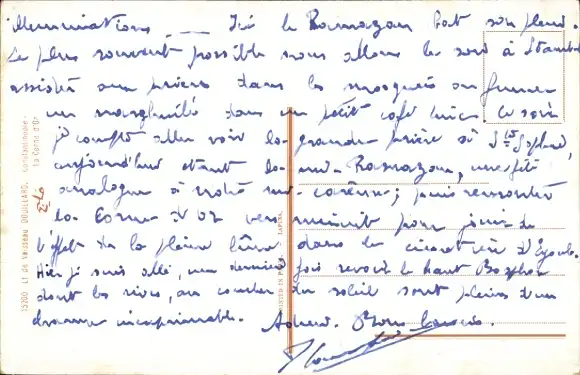 illuminations. — Ici le Ramazan bat son plein.
Le plus souvent possible nous allons le soir à Stamboul
assister aux prières dans les mosquées ou fumer
un narghilé dans un petit café turc. Ce soir
je compte aller voir la grande prière à Ste Sophie,
aujourd'hui étant la mi-Ramazan, une fête
analogue à notre mi-carême; puis remonter
la Corne d'Or vers minuit pour jouir de
l'effet de la pleine lune dans le cimetière d'Eyoub.
Hier je suis allé, une dernière fois revoir le haut Bosphore
dont les rives, au coucher du soleil sont pleines d'un
charme inexprimable. Adieu. Bons baisers.
15200 Lt de Vaisseau DOUILLARD. Constantinople :
La Corne d'Or